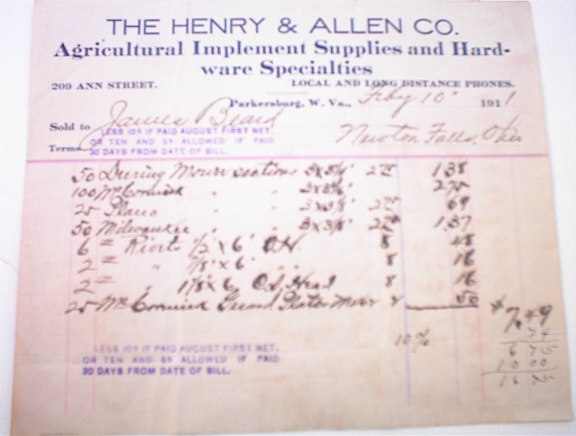 THE HENRY & ALLEN CO.
Agricultural Implement Supplies and Hard-
ware Specialties
209 ANN STREET. LOCAL AND LONG DISTANCE PHONES.
Parkersburg, W. Va., Feby 10 1911
Sold to James Beard
Newton Falls, Ohio
Terms
LESS 10% IF PAID AUGUST FIRST NET,
OR TEN AND 5% ALLOWED IF PAID
30 DAYS FROM DATE OF BILL.
50 Deering Mower sections 2 75 1.38
100 McCormick " " 2.75
25 Plano " " 2 75 69
50 Milwaukee " " 2 75 1.37
6 " 1/2 x 6 O.H. 8 48
2 " " x 6 " 8 16
2 " " x 6 O.S. Head 8 16
25 McCormick Guard Plates Mower 2 50
$ 7 49
10% 74
6 75
10 00
16 75
LESS 10% IF PAID AUGUST FIRST NET,
OR TEN AND 5% ALLOWED IF PAID
30 DAYS FROM DATE OF BILL.